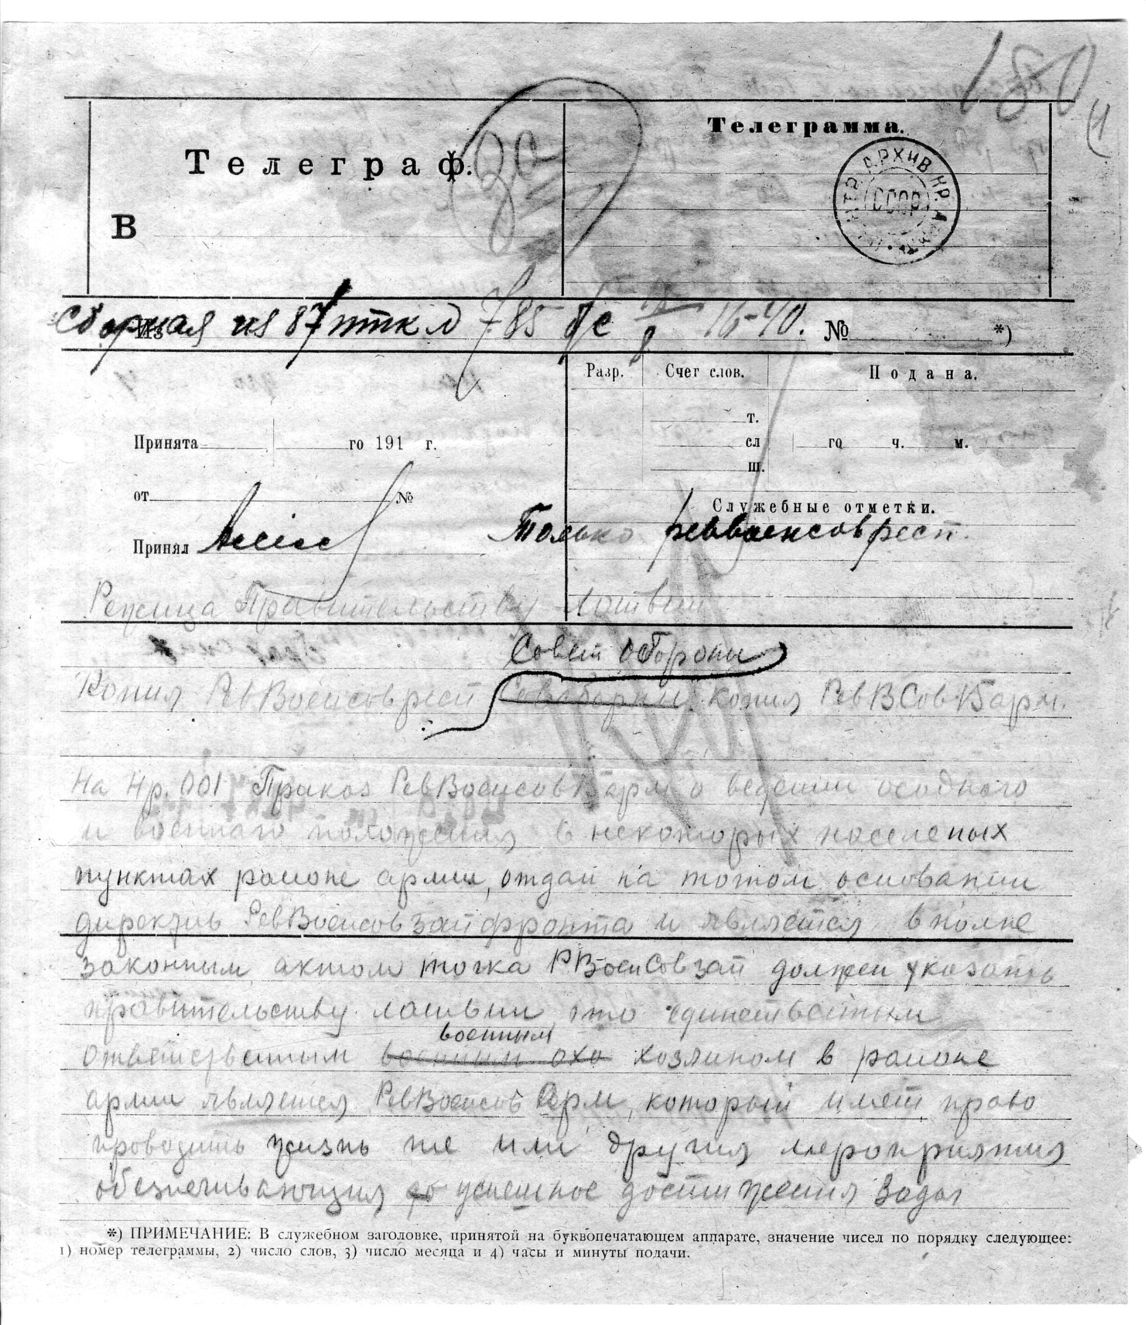 180
Телеграф.
Телеграмма.
ЦЕНТР. АРХИВ КР. АРМИИ
СССР
В
Сборная из 87 птк л 785 бс 8 16-40. № *)
Из
Разр. Счет слов. Подана.
т.
Принята го 191 г. сл го ч. м.
ш.
от №
Служебные отметки.
Принял
Только реввоенсоврест.
Режица Правительству Латвии
Совет Обороны
Копия РевВоенсоврест копия РевВСов Арм.
На Нр. 001 Приказ РевВоенсов Арм о ведении осадного
и военнаго положения в некоторых населеных
пунктах районе армии, отдан на точном основании
директив РевВоенсовзапфронта и является вполне
законным актом точка РВоенСовзап должен указать
правительству латвии что единственным
военным
ответственным военным охо хозяином в районе
армии является РевВоенсов Арм, который имеет право
проводить жизнь те или другия мероприятия
обезпечивающия успешное достижения задач
*) ПРИМЕЧАНИЕ: В служебном заголовке, принятой на буквопечатающем аппарате, значение чисел по порядку следующее:
1) номер телеграммы, 2) число слов, 3) число месяца и 4) часы и минуты подачи.